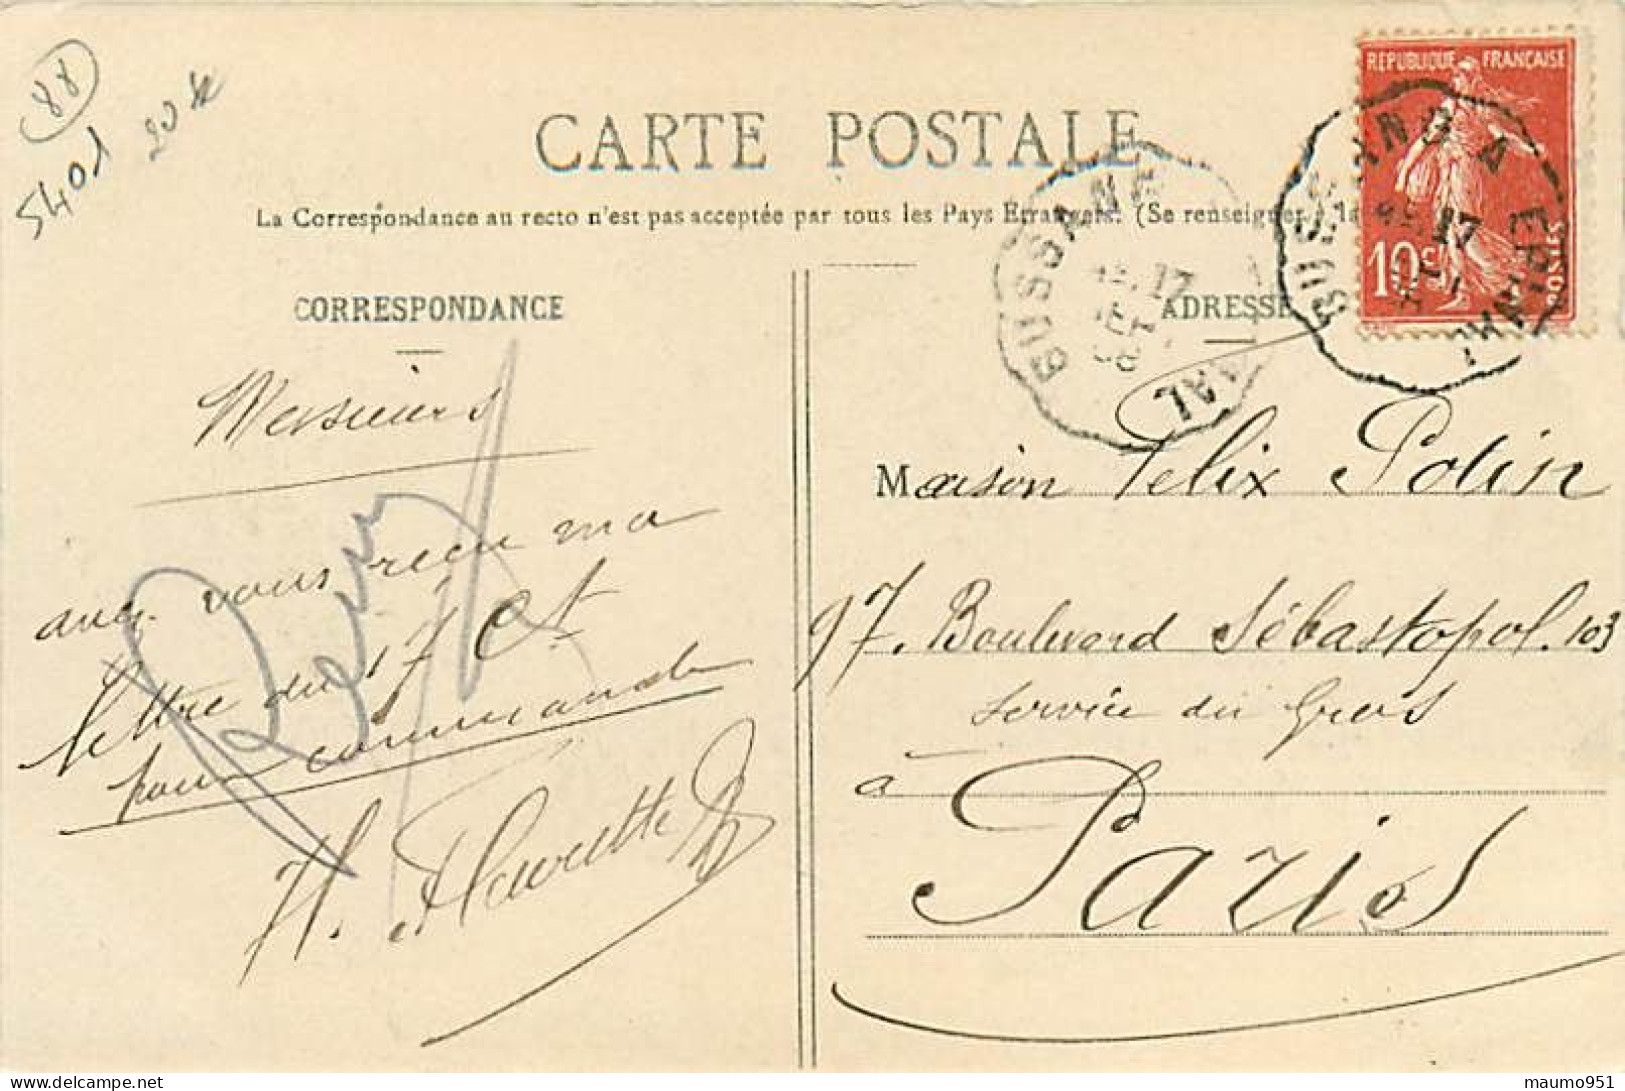 88
5401
20
CARTE POSTALE
La Correspondance au recto n'est pas acceptée par tous les Pays Etrangers. (Se renseigner à la
CORRESPONDANCE
ADRESSE
REPUBLIQUE FRANÇAISE
10c POSTES
BUSSANG A EPINAL
17
BUSSANG
17
Messieurs
avez vous reçu ma
lettre du 17 Ct
pour commande
H.
Maison Felix Potin
97. Boulevard Sébastopol. 103
Service du Gros
a Paris
delcampe.net
maumo951